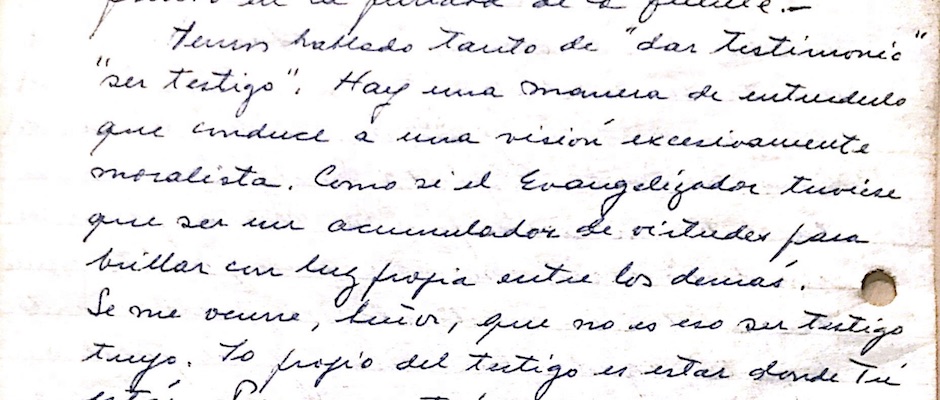 en la de la fuente.-
hablado tanto de "dar testimonio"
"ser testigo". Hay una manera de entenderlo
que conduce a una visión excesivamente
moralista. Como si el Evangelizador tuviese
que ser un acumulador de virtudes para
brillar con luz propia entre los demás.
Se me ocurre, Señor, que no es eso ser testigo
tuyo. Lo propio del testigo es estar donde Tú